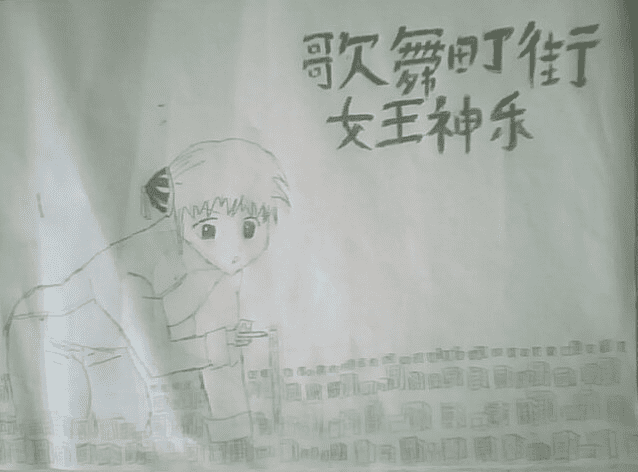 歌舞町街
女王神乐